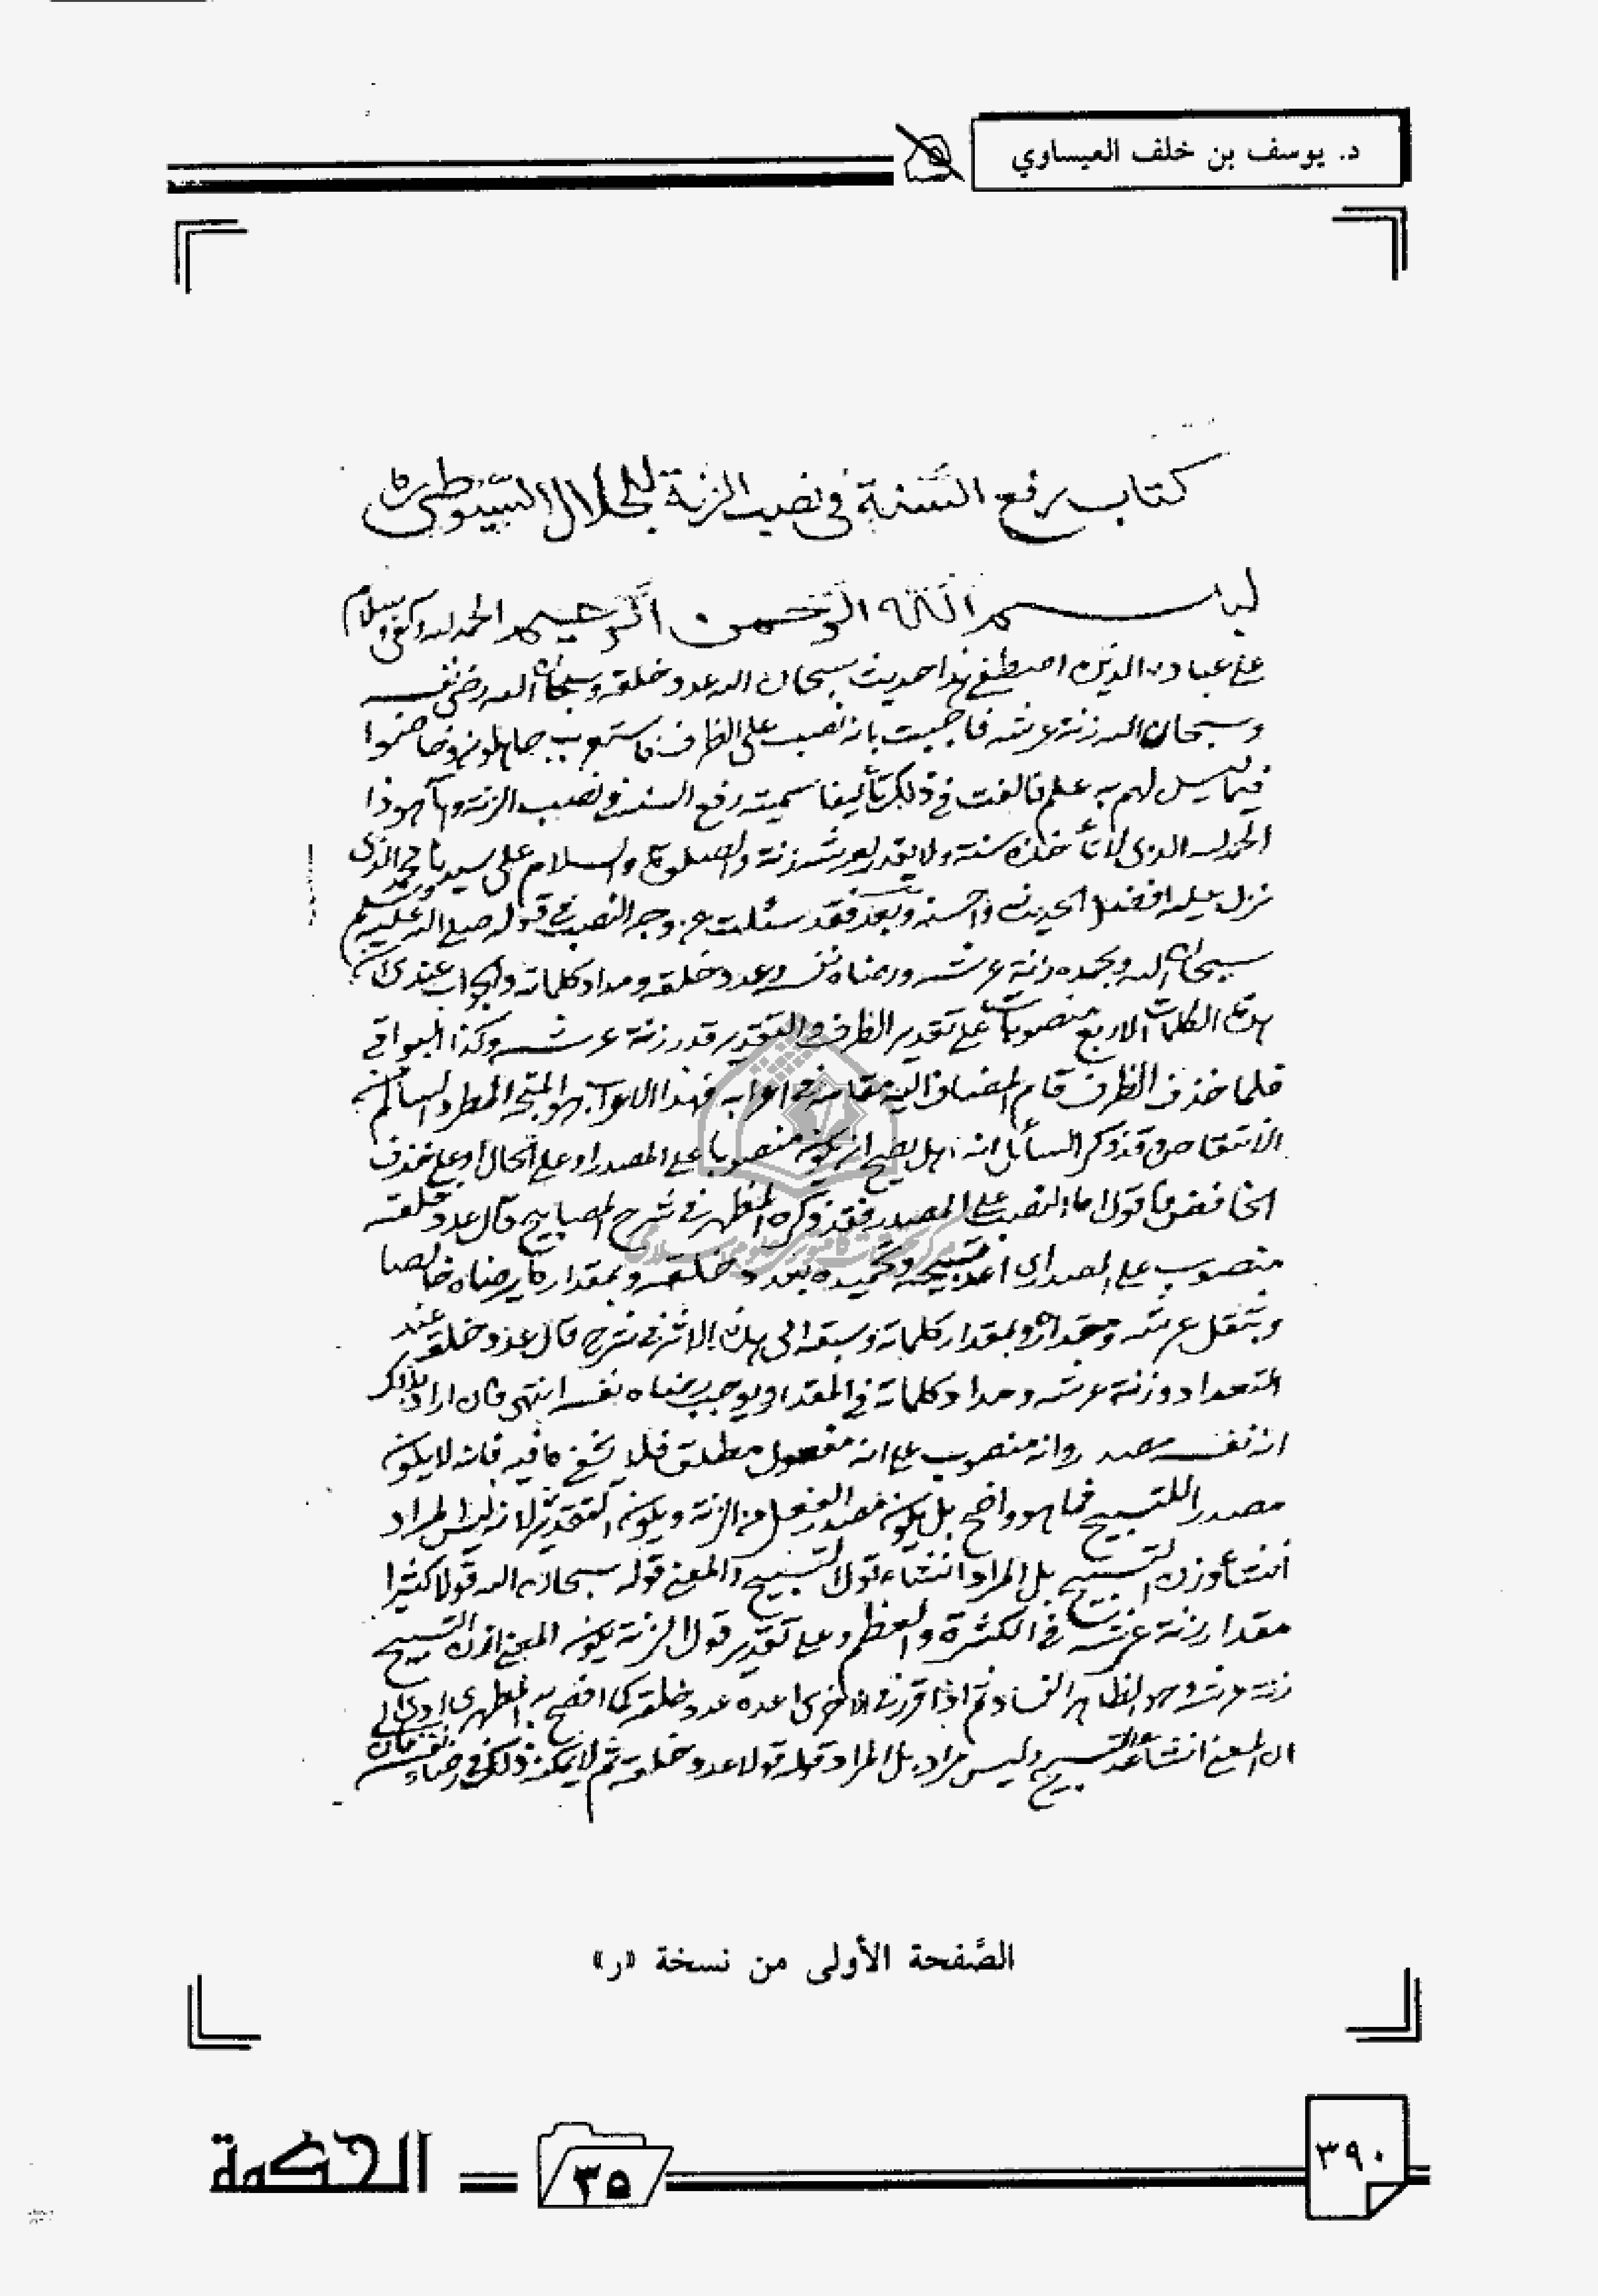 د. يوسف بن خلف العيساوي
كتاب رفع السنة في نصب الزنة للجلال السيوطي
بسم الله الرحمن الرحيم الحمد لله وكفى وسلام
على عباده الذين اصطفى هذا حديث سبحان الله عدد خلقه وسبحان الله رضى نفسه
وسبحان الله زنة عرشه فاجيبت بانه نصب على الظرف فاستغرب جاهلون وخاضوا
فيما ليس لهم به علم فالفت في ذلك تأليفا سميته رفع السنة في نصب الزنة وها هو ذا
الحمد لله الذي لا تأخذه سنة ولا يقدر لعرشه زنة والصلوة والسلام على سيدنا محمد الذي
نزل عليه افضل الحديث واحسنه وبعد فقد سئلت عن وجه النصب في قوله صلى الله عليه وسلم
سبحان الله وبحمده زنة عرشه ورضاه نفسه وعدد خلقه ومداد كلماته والجواب عندي ان
هذه الكلمات الاربع منصوبات على تقدير الظرف والتقدير قدر زنة عرشه وكذا البواقي
فلما حذف الظرف قام المضاف اليه مقامه في اعرابه فهذا الاعراب هو المتجه المطرد السالم من
الانتقاض وقد ذكر السائل انه هل يصح ان يكون منصوبا على المصدر او على الحال او على حذف
الخافض فاقول اما النصب على المصدر فقد ذكره المظهر في شرح المصابيح قال عدد خلقه
منصوب على المصدر اى اعد تسبيحه وتحميده بعدد خلقه وبمقدار ما يرضاه خالصا
وبثقل عرشه ومقداره وبمقدار كلماته وسبقه الى هذا ابن الاثير في شرح قال عدد خلقه عند
التعداد وزنة عرشه ومداد كلماته في المقدار ويوجب رضاه نفسه انتهى فان اراد بذلك
انه نفسه مصدر وانه منصوب على انه مفعول مطلق فلا يخفى ما فيه فانه لا يكون
مصدرا للتسبيح كما هو واضح بل يكون مصدر الفعل من الزنة ويكون التقدير لانه ليس المراد
انشأ وزن التسبيح بل المراد انشاء قول التسبيح والمعنى قوله سبحان الله قولا كثيرا
مقدار زنة عرشه في الكثرة والعظم وعلى تقدير قول الزنة يكون المعنى ازن التسبيح
زنة عرشه وهو ظاهر الفساد ثم اذا قدر في الاخرى اعده عدد خلقه كما افصح به المظهرى ادى الى
ان المعنى انشاء عد التسبيح وليس مراد بل المراد قوله قولا عدد خلقه ثم لا يمكن ذلك في رضاء نفسه فان
الصَّفحة الأولى من نسخة «ر»
٣٩٠
٣٥
الحكمة